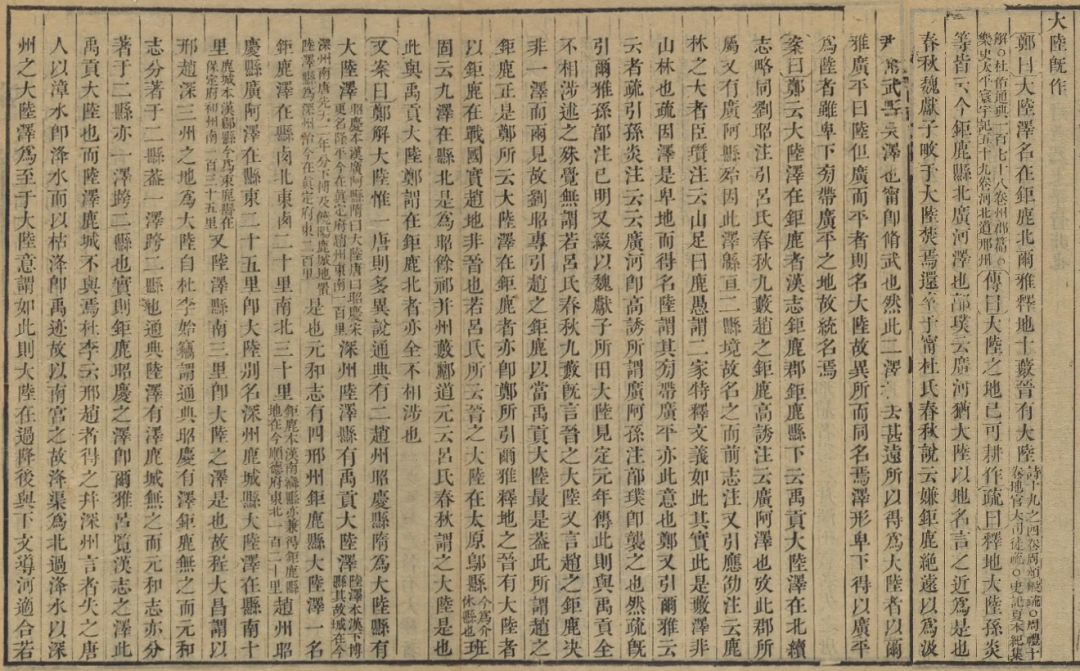 大陸旣作
鄭曰大陸澤名在鉅鹿北爾雅釋地十藪晉有大陸詩十九之四卷周頌般疏○周禮十卷地官大司徒疏○史記夏本紀集
解○杜佑通典一百七十八卷州郡篇○樂史太平寰宇記五十九卷河北道邢州傳曰大陸之地已可耕作疏曰釋地大陸孫炎
等皆云今鉅鹿縣北廣河澤也郭璞云廣河猶大陸以地名言之近爲是也
春秋魏獻子畋于大陸焚焉還至于甯杜氏春秋說云嫌鉅鹿絶遠以爲汲
脩武縣吳澤也甯卽脩武也然此二澤去甚遠所以得爲大陸者以爾
雅廣平曰陸但廣而平者則名大陸故異所而同名焉澤形卑下得以廣平
爲陸者雖卑下旁帶廣平之地故統名焉
案曰鄭云大陸澤在鉅鹿者漢志鉅鹿郡鉅鹿縣下云禹貢大陸澤在北續
志略同劉昭注引呂氏春秋九藪趙之鉅鹿高誘注云廣阿澤也攷此郡所
屬又有廣阿縣殆因此澤緜亘二縣境故名之而前志注又引應劭注云鹿
林之大者臣瓚注云山足曰鹿愚謂二家特釋文義如此其實此是藪澤非
山林也疏因澤是卑地而得名陸謂其旁帶廣平亦此意也鄭又引爾雅云
云者疏引孫炎注云云廣河卽高誘所謂廣阿孫注郭璞卽襲之也然疏旣
引爾雅孫郭注已明又綴以魏獻子所田大陸見定元年傳此則與禹貢全
不相涉述之殊覺無謂若呂氏春秋九藪旣言晉之大陸又言趙之鉅鹿決
非一澤而兩見故劉昭專引趙之鉅鹿以當禹貢大陸最是蓋此所謂趙之
鉅鹿正是鄭所云大陸澤在鉅鹿者亦卽鄭所引爾雅釋地之晉有大陸者
以鉅鹿在戰國實趙地非晉也若呂氏所云晉之大陸在太原鄔縣今爲介休縣也班
固云九澤在縣北是爲昭餘祁幷州藪酈道元云呂氏春秋謂之大陸是也
此與禹貢大陸鄭謂在鉅鹿北者亦全不相涉也
又案曰鄭解大陸惟一唐則多異說通典有二趙州昭慶縣隋爲大陸縣有
大陸澤昭慶本漢廣阿縣隋曰大陸唐曰昭慶宋更名隆平今在眞定府趙州東南一百里深州陸澤縣有禹貢大陸澤陸澤本漢下博縣其故城在今
深州南唐先天二年分下博及饒陽鹿城地置陸澤縣爲深州治今在眞定府東二百里是也元和志有四邢州鉅鹿縣大陸澤一名
鉅鹿澤在縣西北東西二十里南北三十里鉅鹿本漢南䜌縣亦兼得鉅鹿縣地在今順德府東北一百二十里趙州昭
慶縣廣阿澤在縣東二十五里卽大陸別名深州鹿城縣大陸澤在縣南十
里鹿城本漢鄡縣今爲束鹿縣在保定府祁州南一百三十五里又陸澤縣南三里卽大陸之澤是也故程大昌謂以
邢趙深三州之地爲大陸自杜李始竊謂通典昭慶有澤鉅鹿無之而元和
志分著于二縣蓋一澤跨二縣也通典陸澤有澤鹿城無之而元和志亦分
著于二縣亦一澤跨二縣也實則鉅鹿昭慶之澤卽爾雅呂覽漢志之澤此
禹貢大陸也而陸澤鹿城不與焉杜李云邢趙者得之幷深州言者失之唐
人以漳水卽洚水而以枯洚卽禹迹故以南宮之故洚渠爲北過洚水以深
州之大陸澤爲至于大陸意謂如此則大陸在過降後與下文導河適合若